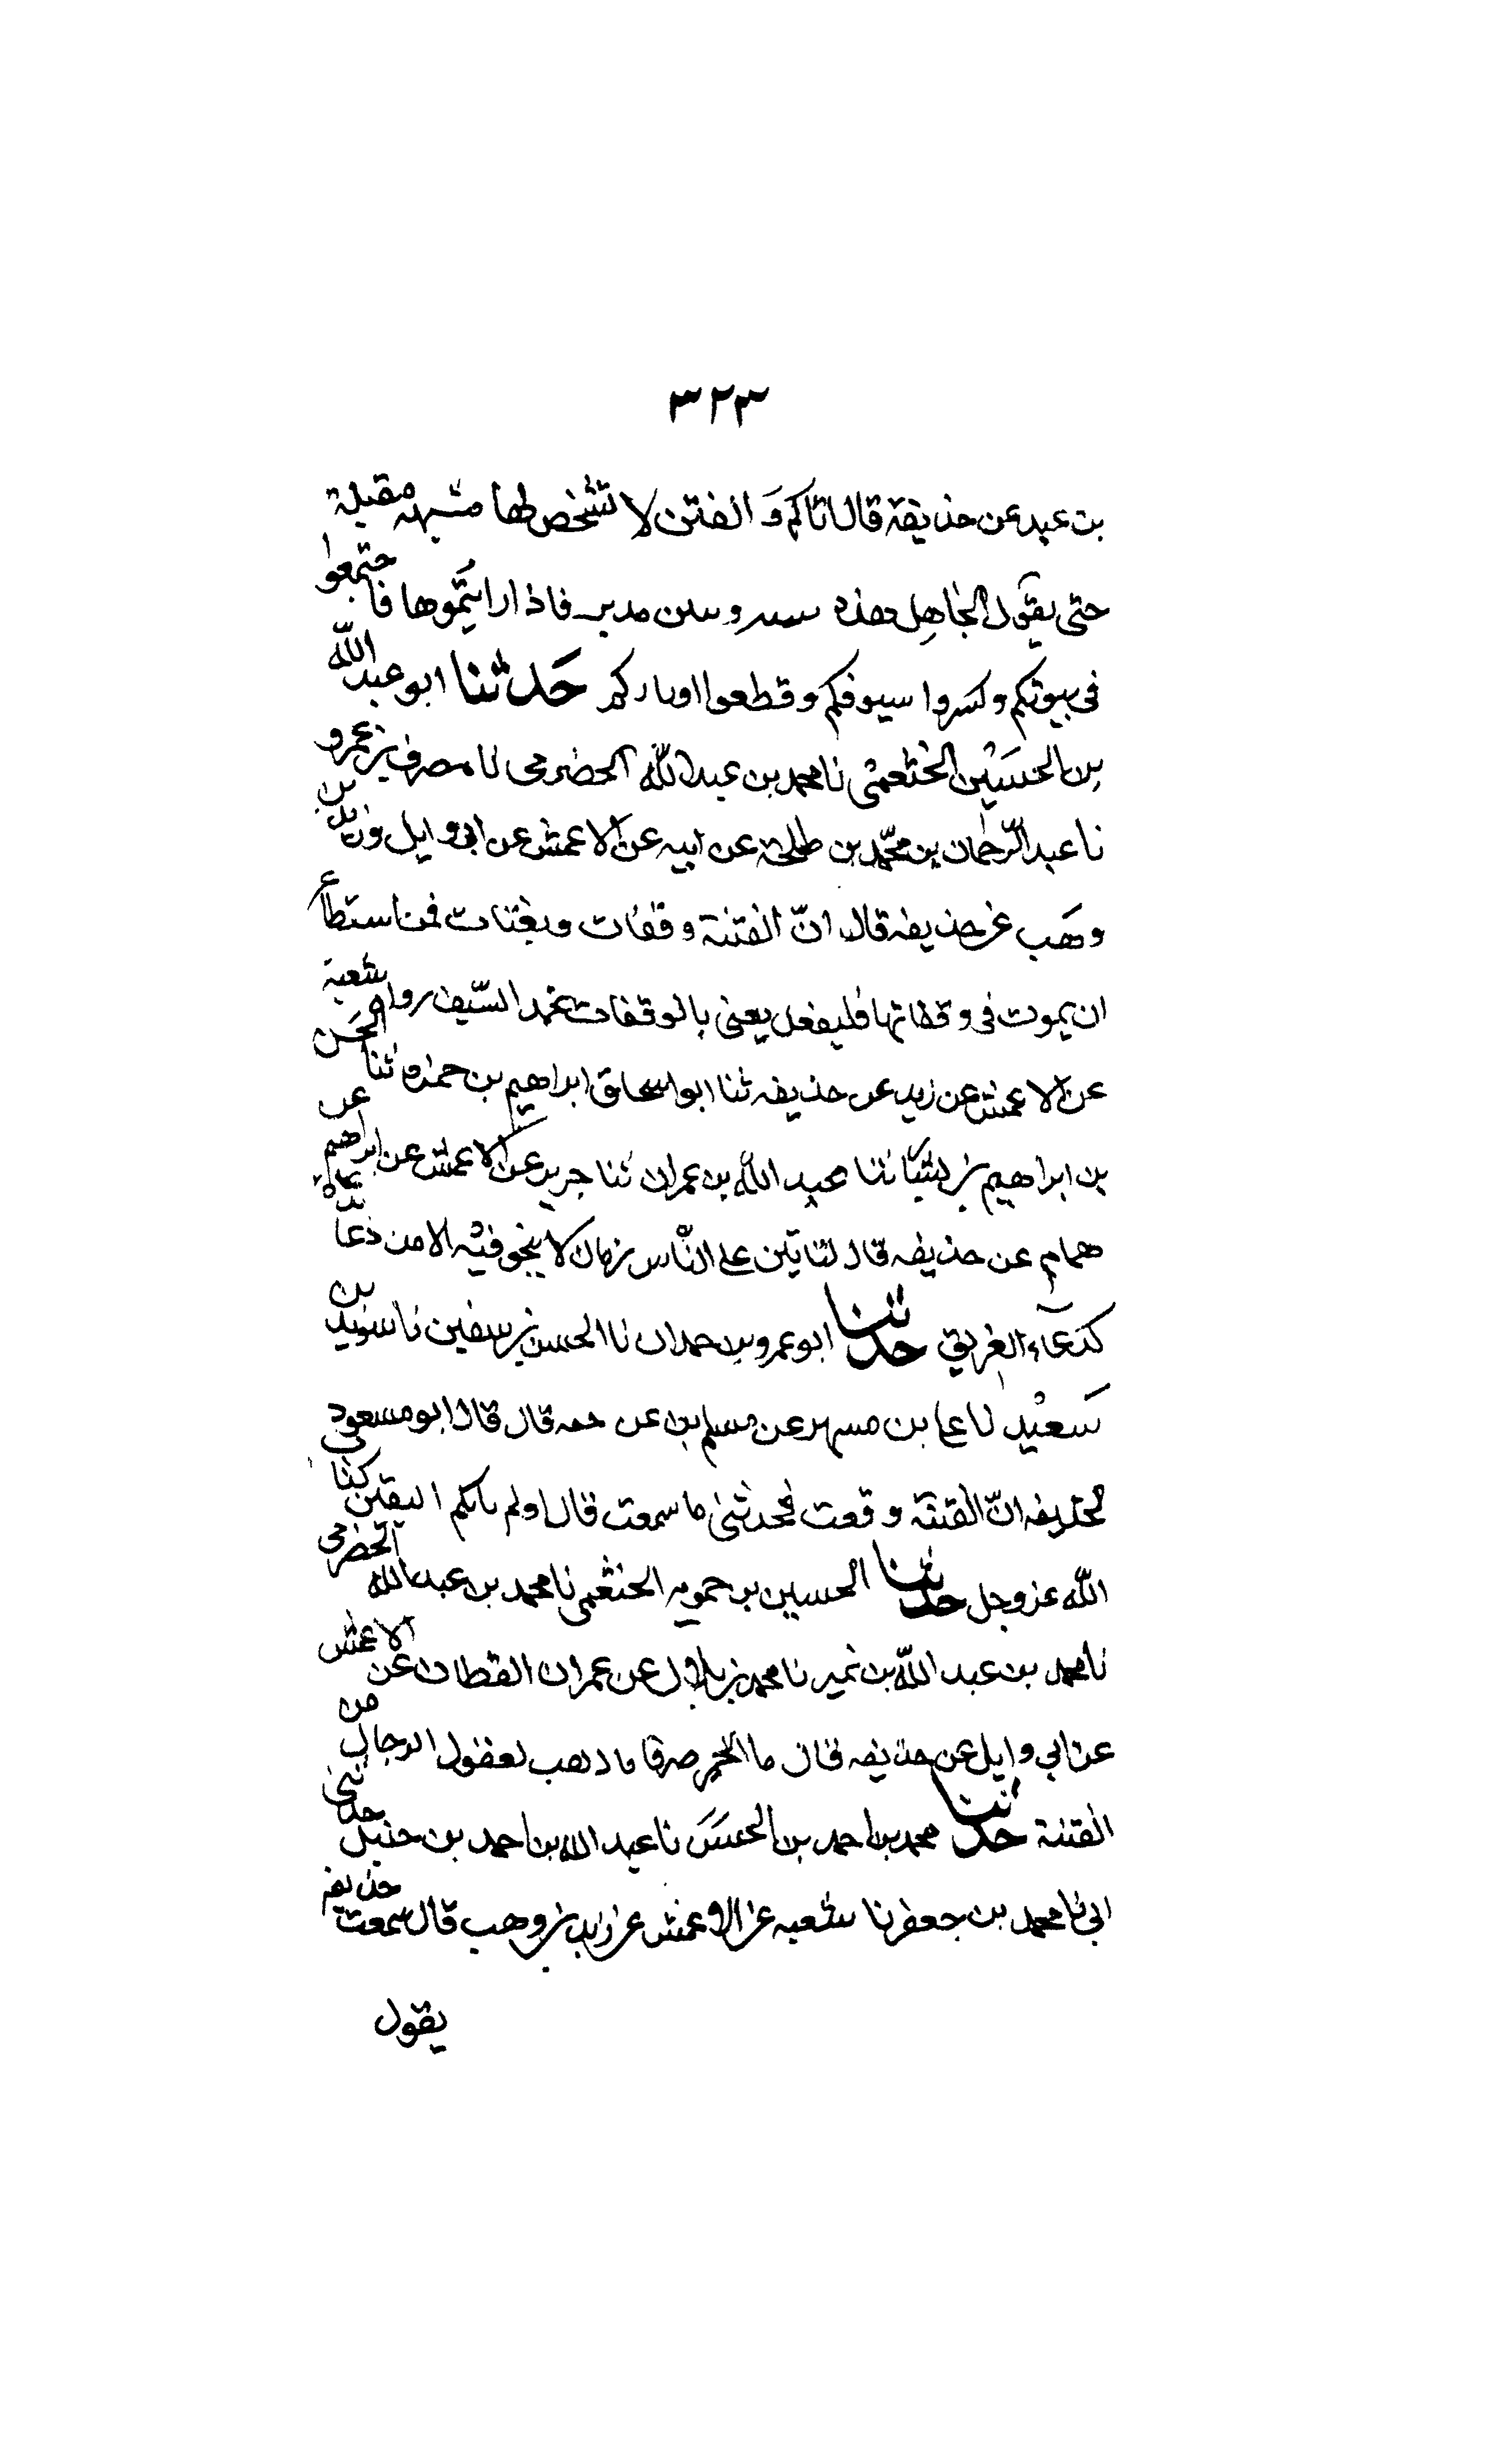 ٣٢٣
بن عبد عن حذيفة قال اتاكم و الفتن لا تشخص لها مشبهه مقبلة
حتى يقول الجاهل هذه وسن مدبر فاذا رايتموها فاجتمعوا
فى بيوتكم وكسروا سيوفكم وقطعوا اوتاركم حدثنا ابو عبد الله
بن الحسين الخثعمى نا محمد بن عبد الله الحضرمى نا مصرف بن عمرو
نا عبد الرحمان بن محمد بن طلحة عن ابيه عن الاعمش عن ابى وايل وزيد بن
وهب عن حذيفه قال ان الفتنة وقفات وبغتات فمن استطاع
ان يموت فى وقفاتها فليفعل يعنى بالوقفات غمد السيف رواه شعبة
عن الاعمش عن زيد عن حذيفه ثنا ابو اسحاق ابراهيم بن حمزه ثنا الحسن
بن ابراهيم بن بشار ثنا عبد الله بن عمران ثنا جرير عن الاعمش عن ابراهيم عن
همام عن حذيفه قال لتاتين على الناس زمان لا ينجو فيه الا من دعا
كدعاء الغريق حدثنا ابو عمرو بن حمدان نا الحسن بن سفين نا سويد بن
سعيد نا على بن مسهر عن مسلم عن حبه قال قال ابو مسعود
لحذيفه ان الفتنة وقعت فحدثنى ما سمعت قال اولم ياتكم اليقين كتاب
الله عز وجل حدثنا الحسين بن حمويه الخثعمى نا محمد بن عبد الله الحضرمى
نا محمد بن عبد الله بن نمير نا محمد بن بلال عن عمران القطان عن الاعمش
عن ابي وايل عن حذيفه قال ما الخمر صرفا باذهب لعقول الرجال من
الفتنة حدثنا محمد بن احمد بن الحسن نا عبد الله بن احمد بن حنبل حدثنى
ابى نا محمد بن جعفر نا شعبه عن الاعمش عن زيد بن وهب قال سمعت حذيفه
يقول